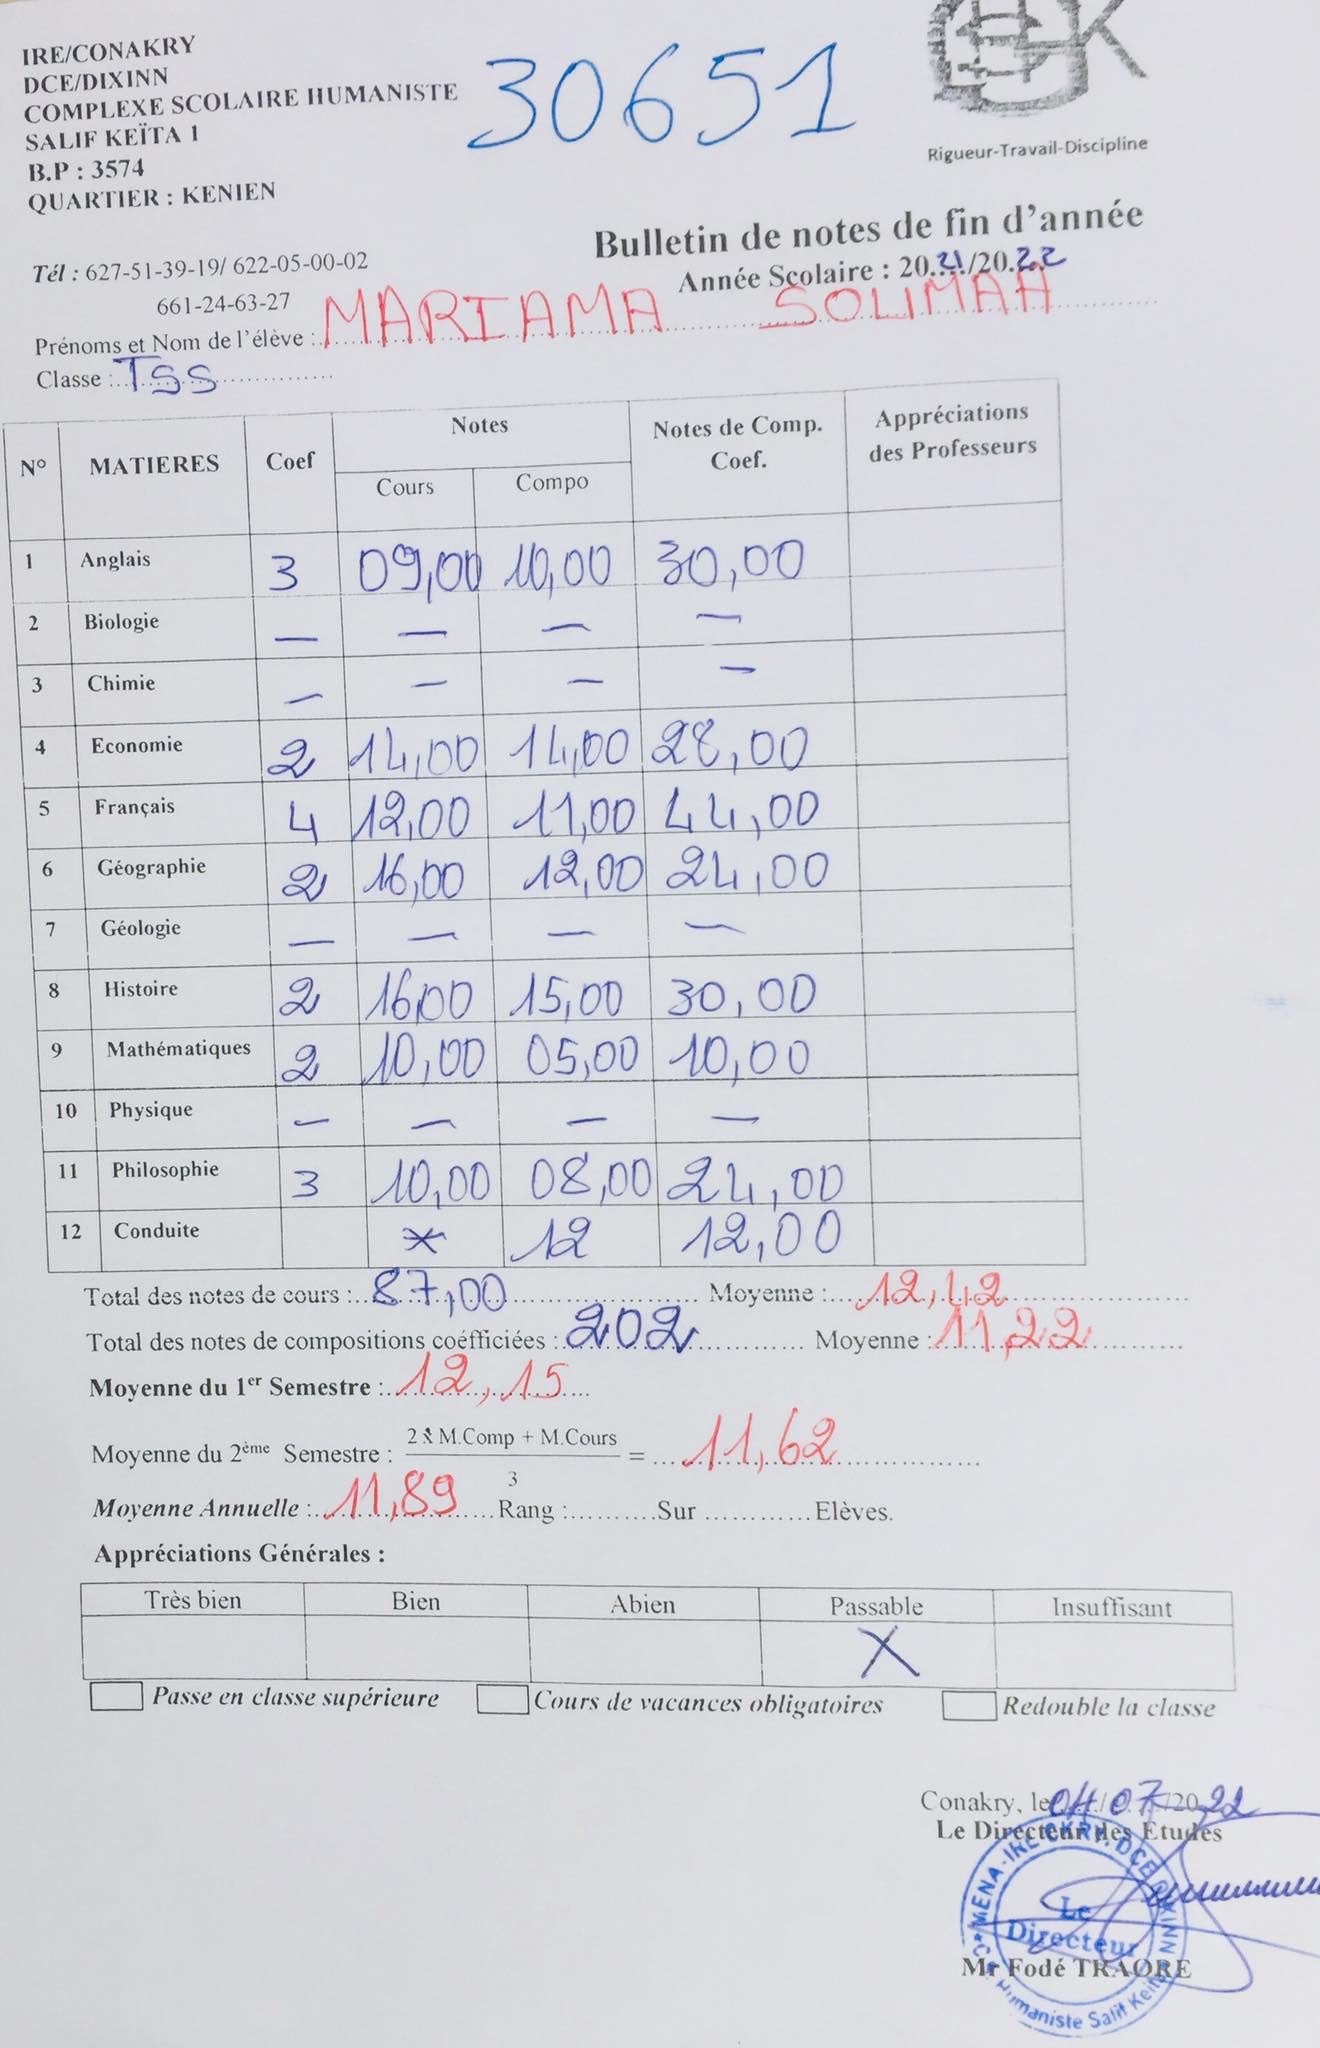 IRE/CONAKRY
DCE/DIXINN
COMPLEXE SCOLAIRE HUMANISTE
SALIF KEÏTA 1
B.P : 3574
QUARTIER : KENIEN
30651
Rigueur-Travail-Discipline
Bulletin de notes de fin d'année
Année Scolaire : 20.21/20.22
Tél : 627-51-39-19/ 622-05-00-02
661-24-63-27
Prénoms et Nom de l'élève : MARIAMA SOLIMAH
Classe : TSS
N° MATIERES Coef Notes Notes de Comp. Coef. Appréciations des Professeurs
Cours Compo
1 Anglais 3 09,00 10,00 30,00
2 Biologie — — — —
3 Chimie — — — —
4 Economie 2 14,00 14,00 28,00
5 Français 4 12,00 11,00 44,00
6 Géographie 2 16,00 12,00 24,00
7 Géologie — — — —
8 Histoire 2 16,00 15,00 30,00
9 Mathématiques 2 10,00 05,00 10,00
10 Physique — — — —
11 Philosophie 3 10,00 08,00 24,00
12 Conduite * 12 12,00
Total des notes de cours : 87,00 Moyenne : 12,42
Total des notes de compositions coéfficiées : 202 Moyenne : 11,22
Moyenne du 1er Semestre : 12,15
Moyenne du 2ème Semestre : 2 X M.Comp + M.Cours / 3 = 11,62
Moyenne Annuelle : 11,89 Rang :.........Sur ...........Elèves.
Appréciations Générales :
Très bien Bien Abien Passable Insuffisant
X
Passe en classe supérieure Cours de vacances obligatoires Redouble la classe
Conakry, le 04/07/2022
Le Directeur des Etudes
MENA-IRE CKRY DCE DIXINN
Le Directeur
Mr Fodé TRAORE
Humaniste Salif Keita